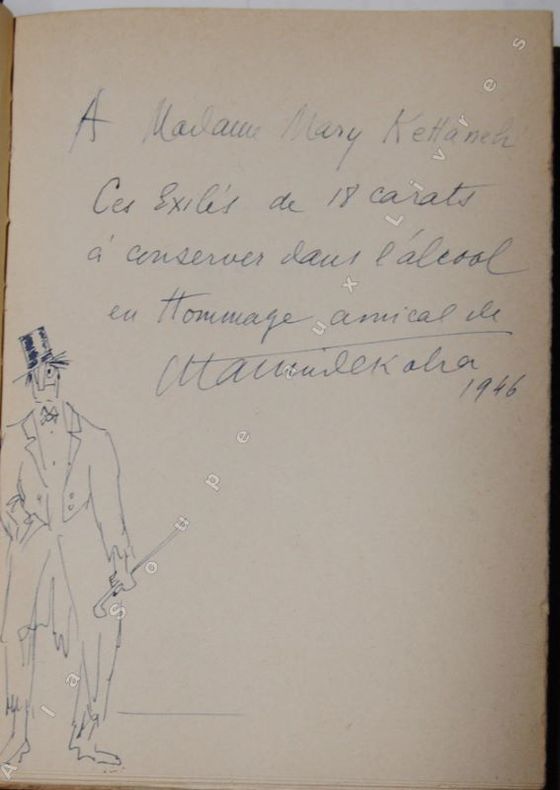 A Madame Mary Kettaneh
Ces Exilés de 18 carats
à conserver dans l'alcool
en Hommage amical de
Maurice Dekobra
1946
A la Soupe aux Livres